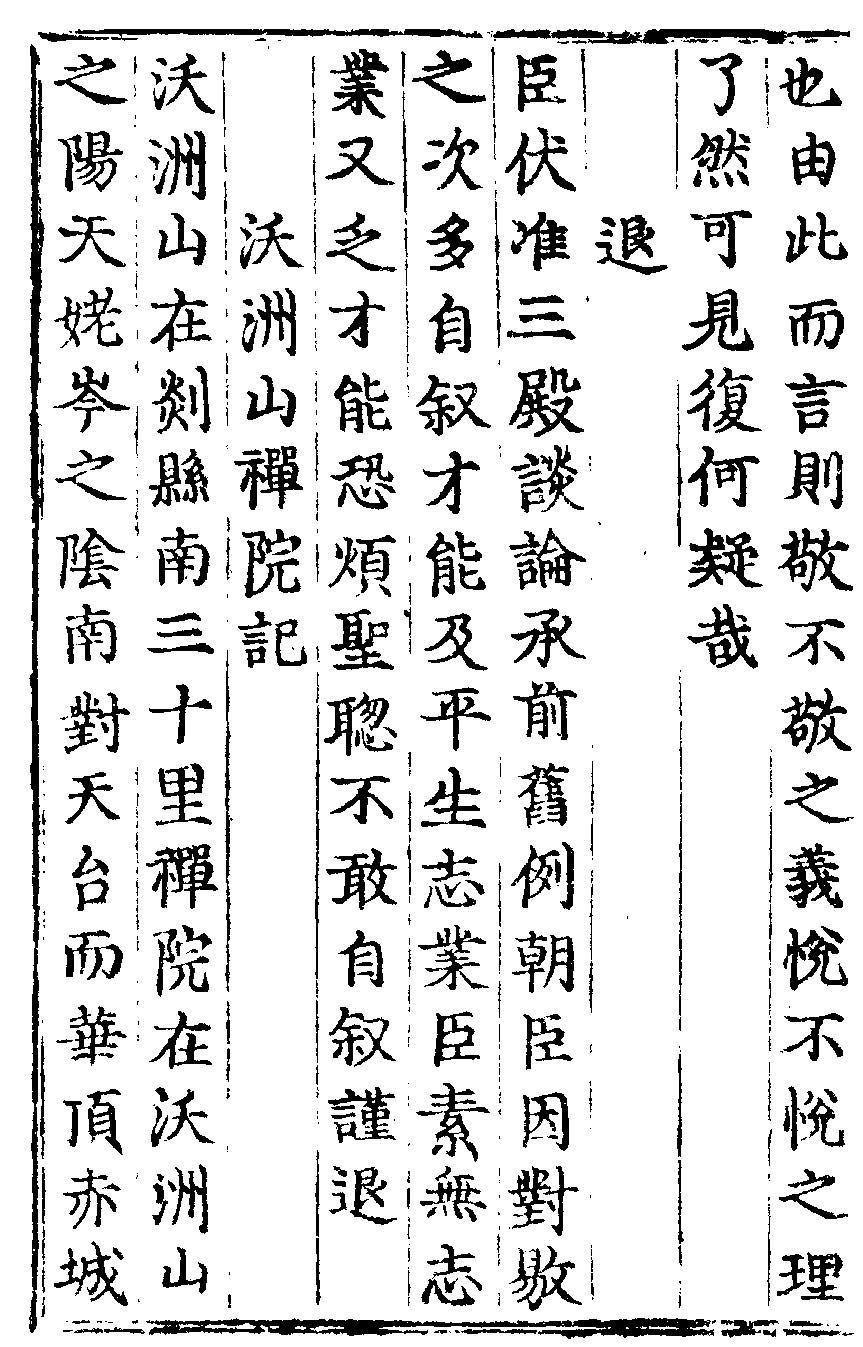 也由此而言則敬不敬之義悅不悅之理
了然可見復何疑哉
退
臣伏准三殿談論承前舊例朝臣因對敭
之次多自叙才能及平生志業臣素無志
業又乏才能恐煩聖聦不敢自叙謹退
沃洲山禪院記
沃洲山在剡縣南三十里禪院在沃洲山
之陽天姥岑之陰南對天台而華頂赤城